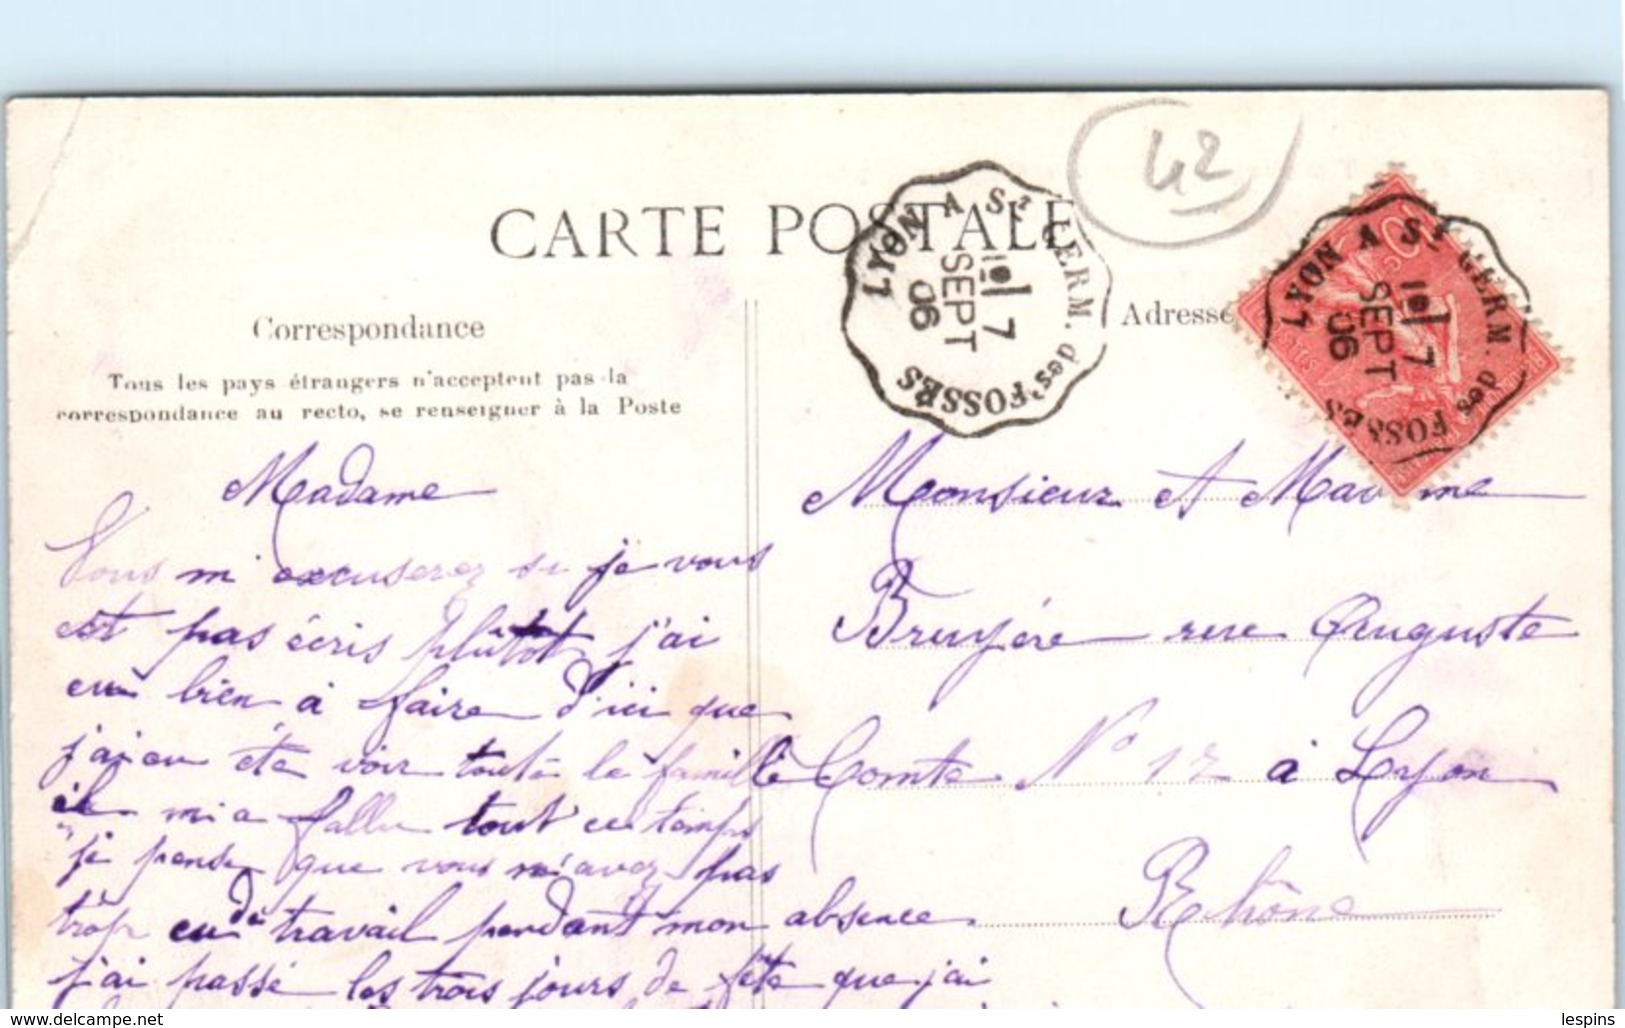 42
CARTE POSTALE
LYON A St GERM. des FOSSÉS
7
SEPT
06
LYON A St GERM. des FOSSÉS
7
SEPT
06
Correspondance
Tous les pays étrangers n'acceptent pas la
correspondance au recto, se renseigner à la Poste
Adresse
Madame
Vous m'excuserez si je vous
est pas écris plutôt j'ai
eu bien à faire d'ici que
j'ai eu été voir toute la famille
il m'a fallu tout ce temps
je pense que vous m'avez pas
trop eu de travail pendant mon absence
j'ai passé les trois jours de fête que j'ai
Monsieur et Madame
Bruyére rue Auguste
Comte No 12 à Lyon
Rhône
lespins
www.delcampe.net